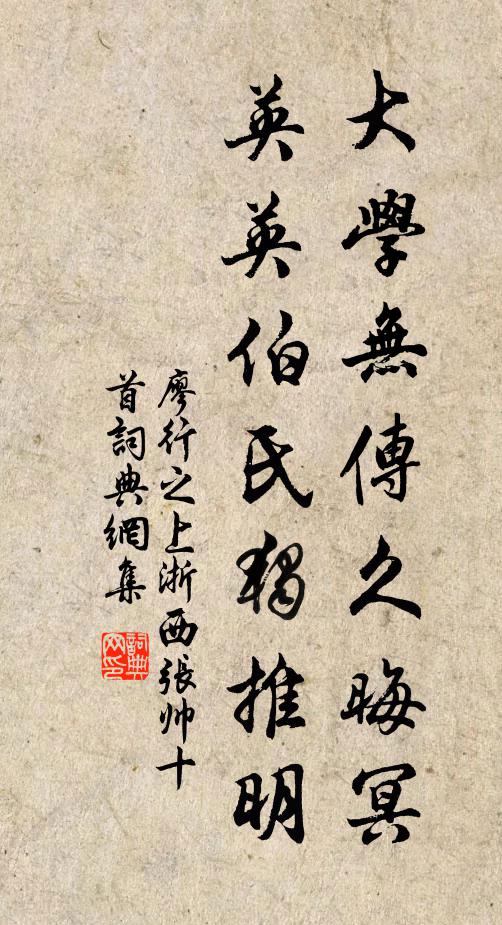 大學無傳久晦冥
英英伯氏獨推明
廖行之上浙西張帅十
首詞典網集
詞典网印